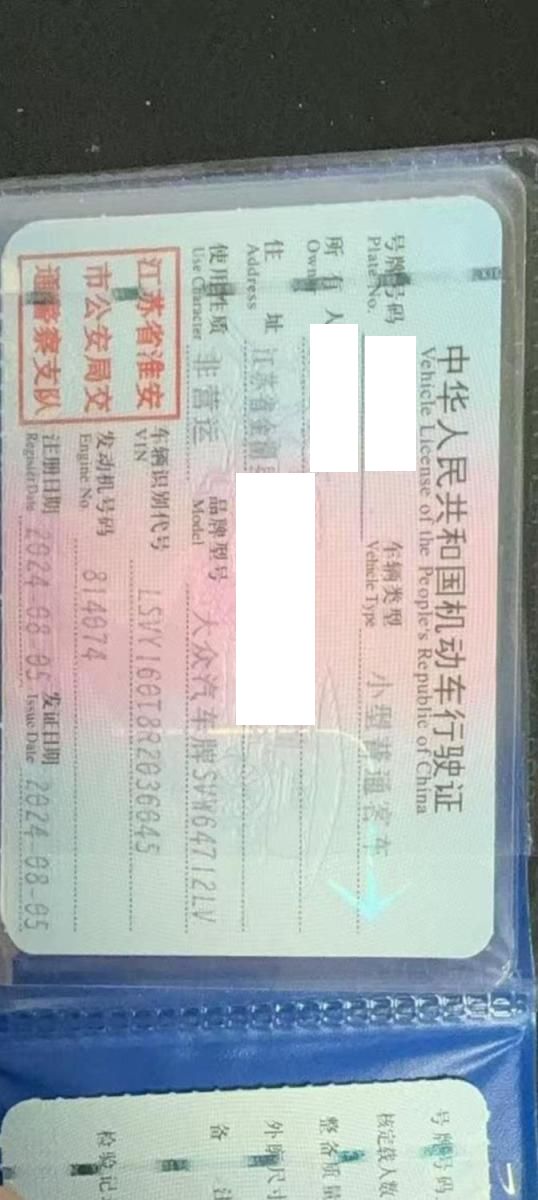 中华人民共和国机动车行驶证
Vehicle License of the People's Republic of China
号牌号码
Plate No.
车辆类型 小型普通客车
Vehicle Type
所有人
Owner
住址 江苏省金湖县
Address
使用性质 非营运
Use Character
品牌型号 大众汽车牌SVW64712LV
Model
江苏省淮安
市公安局交
通警察支队
车辆识别代号 LSVY160T8R2036045
VIN
发动机号码 814074
Engine No.
注册日期 2024-08-05
Register Date
发证日期 2024-08-05
Issue Date
号牌号码
核定载人数
整备质量
外廓尺寸
备注
检验记